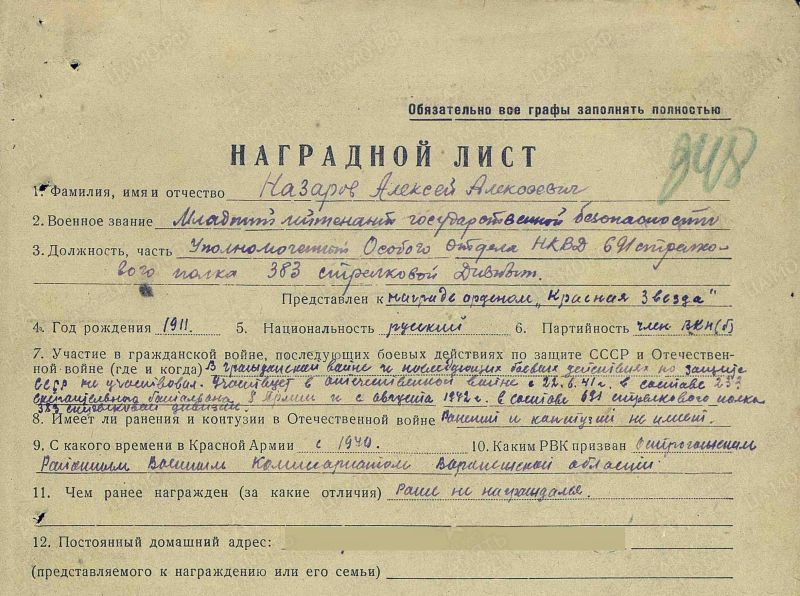 Обязательно все графы заполнять полностью
248
НАГРАДНОЙ ЛИСТ
1. Фамилия, имя и отчество Назаров Алексей Алексеевич
2. Военное звание Младший лейтенант государственной безопасности
3. Должность, часть Уполномоченный Особого отдела НКВД 691 стрелко-
вого полка 383 стрелковой Дивизии.
Представлен к награде орденом „Красная Звезда"
4. Год рождения 1911. 5. Национальность русский 6. Партийность член ВКП(б)
7. Участие в гражданской войне, последующих боевых действиях по защите СССР и Отечествен-
ной войне (где и когда) В гражданской войне и последующих боевых действиях по защите
СССР не участвовал. Участвует в отечественной войне с 22.6.41г. в составе
батальона Армии и с августа 1942г. в составе 691 стрелкового полка
383 стрелковой дивизии.
8. Имеет ли ранения и контузии в Отечественной войне Ранений и контузий не имеет.
9. С какого времени в Красной Армии с 1940. 10. Каким РВК призван Острогожским
Районным Военным Комиссариатом Воронежской области
11. Чем ранее награжден (за какие отличия) Ранее не награждался.
12. Постоянный домашний адрес:
(представляемого к награждению или его семьи)